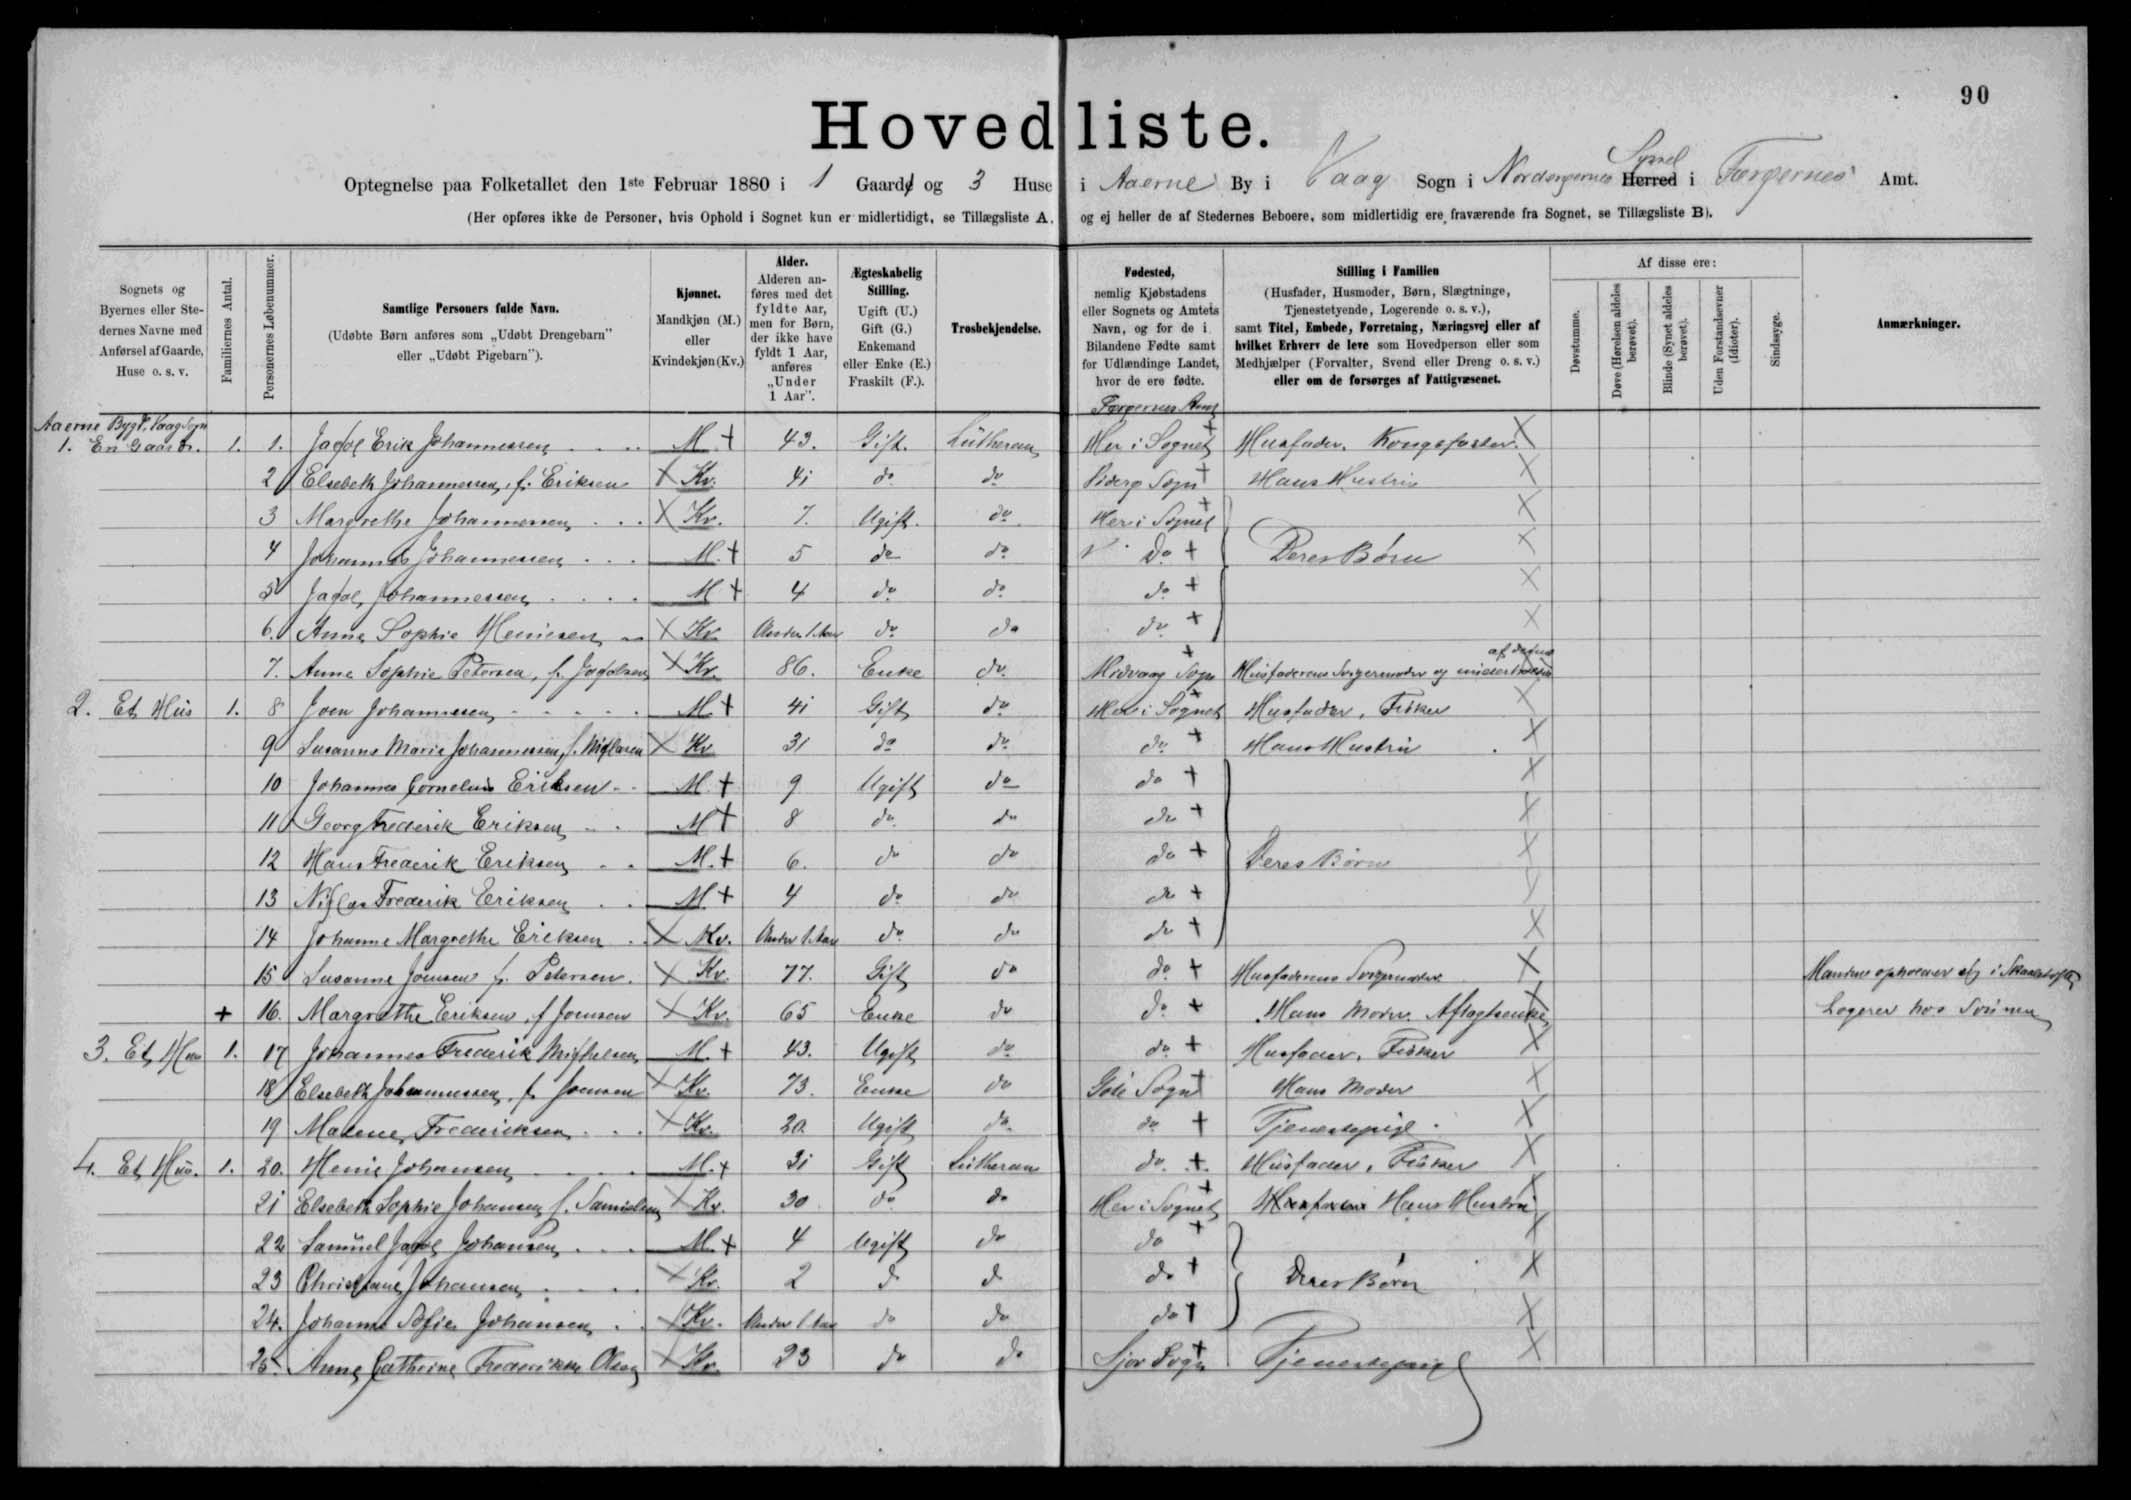 90
Hovedliste.
Optegnelse paa Folketallet den 1ste Februar 1880 i 1 Gaard og 3 Huse i Aaerne By i Vaag Sogn i Norderøernes Syssel Herred i Færøernes Amt.
(Her opføres ikke de Personer, hvis Ophold i Sognet kun er midlertidigt, se Tillægsliste A, og ej heller de af Stedernes Beboere, som midlertidig ere fraværende fra Sognet, se Tillægsliste B).
Sognets og Byernes eller Stedernes Navne med Anførsel af Gaarde, Huse o. s. v.
Familiernes Antal.
Personernes Løbenummer.
Samtlige Personers fulde Navn.
(Udøbte Børn anføres som „Udøbt Drengebarn” eller „Udøbt Pigebarn”).
Kjønnet.
Mandkjøn (M.) eller Kvindekjøn (Kv.)
Alder.
Alderen anføres med det fyldte Aar, men for Børn, der ikke have fyldt 1 Aar, anføres „Under 1 Aar”.
Ægteskabelig Stilling.
Ugift (U.) Gift (G.) Enkemand eller Enke (E.) Fraskilt (F.).
Trosbekjendelse.
Fødested,
nemlig Kjøbstadens eller Sognets og Amtets Navn, og for de i Bilandene Fødte samt for Udlændinge Landet, hvor de ere fødte.
Stilling i Familien
(Husfader, Husmoder, Børn, Slægtninge, Tjenestetyende, Logerende o. s. v.), samt Titel, Embede, Forretning, Næringsvej eller af hvilket Erhverv de leve som Hovedperson eller som Medhjælper (Forvalter, Svend eller Dreng o. s. v.) eller om de forsørges af Fattigvæsenet.
Af disse ere:
Døvstumme.
Døve (Hørelsen aldeles berøvet).
Blinde (Synet aldeles berøvet).
Uden Forstandsevner (Idioter).
Sindssyge.
Anmærkninger.
Aaerne Bygd, Vaag Sogn
Færøernes Amt
1. En Gaard. 1. 1. Jacob Erik Johannessen M. + 43. Gift. Lutheran Her i Sognet + Husfader. Kongsfæster X
2 Elsebeth Johannessen, f. Eriksen X Kv. 41 do do Viderø Sogn + Hans Hustru X
3 Margrethe Johannessen X Kv. 7. Ugift. do Her i Sognet + X
4 Johannes Johannessen M. + 5 do do do + Deres Børn X
5 Jacob Johannessen M + 4 do do do + X
6. Anna Sophie X Kv. Under 1 Aar do do do + X
7. Anne Sophie Petersen, f. Jacobsen X Kv. 86. Enke do. Midvaag Sogn + Husfaderens Svigermoder og af denne X
2. Et Hus 1. 8 Joen Johannesen M + 41 Gift do Her i Sognet + Husfader, Fisker X
9 Susanne Marie Johannessen, f. X Kv 31 do do do + Hans Hustru X
10 Johannes Cornelius Eriksen M. + 9 Ugift do do + X
11 Georg Frederik Eriksen M + 8 do do do + X
12 Hans Frederik Eriksen M. + 6. do do do + Deres Børn X
13 Frederik Eriksen M + 4 do do do + X
14 Johanne Margrethe Eriksen X Kv. Under 1 Aar do do do + X
15 Susanne Joensen f. Petersen X Kv. 77. Gift do do + Husfaderens Svigermoder X Manden opholder sig i
+ 16. Margrethe Eriksen, f Joensen X Kv. 65 Enke do do + Hans Moder. Aftægtsenke X Logerer hos Sønnen
3. Et Hus 1. 17 Johannes Frederik M. + 43. Ugift do do + Husfader, Fisker X
18 Elsebeth Johannessen, f. Joensen X Kv. 73. Enke do Gøte Sogn + Hans Moder X
19 Malene Frederiksen X Kv. 20. Ugift do do + Tjenestepige X
4. Et Hus. 1. 20. Henie Johansen M. + 31 Gift Lutheran do + Husfader, Fisker X
21 Elsebeth Sophie Johansen f. Samuelsen X Kv. 30 do do Her i Sognet + Hans Hustru X
22 Samuel Jacob Johansen M + 4 Ugift do do + X
23 Christiane Johansen X Kv. 2 d d do + Deres Børn X
24. Johanne Sofie Johansen X Kv. Under 1 Aar do do do + X
25. Anne Cathrine Frederikke Olsen X Kv. 23 do do Sjov Sogn + Tjenestepige X